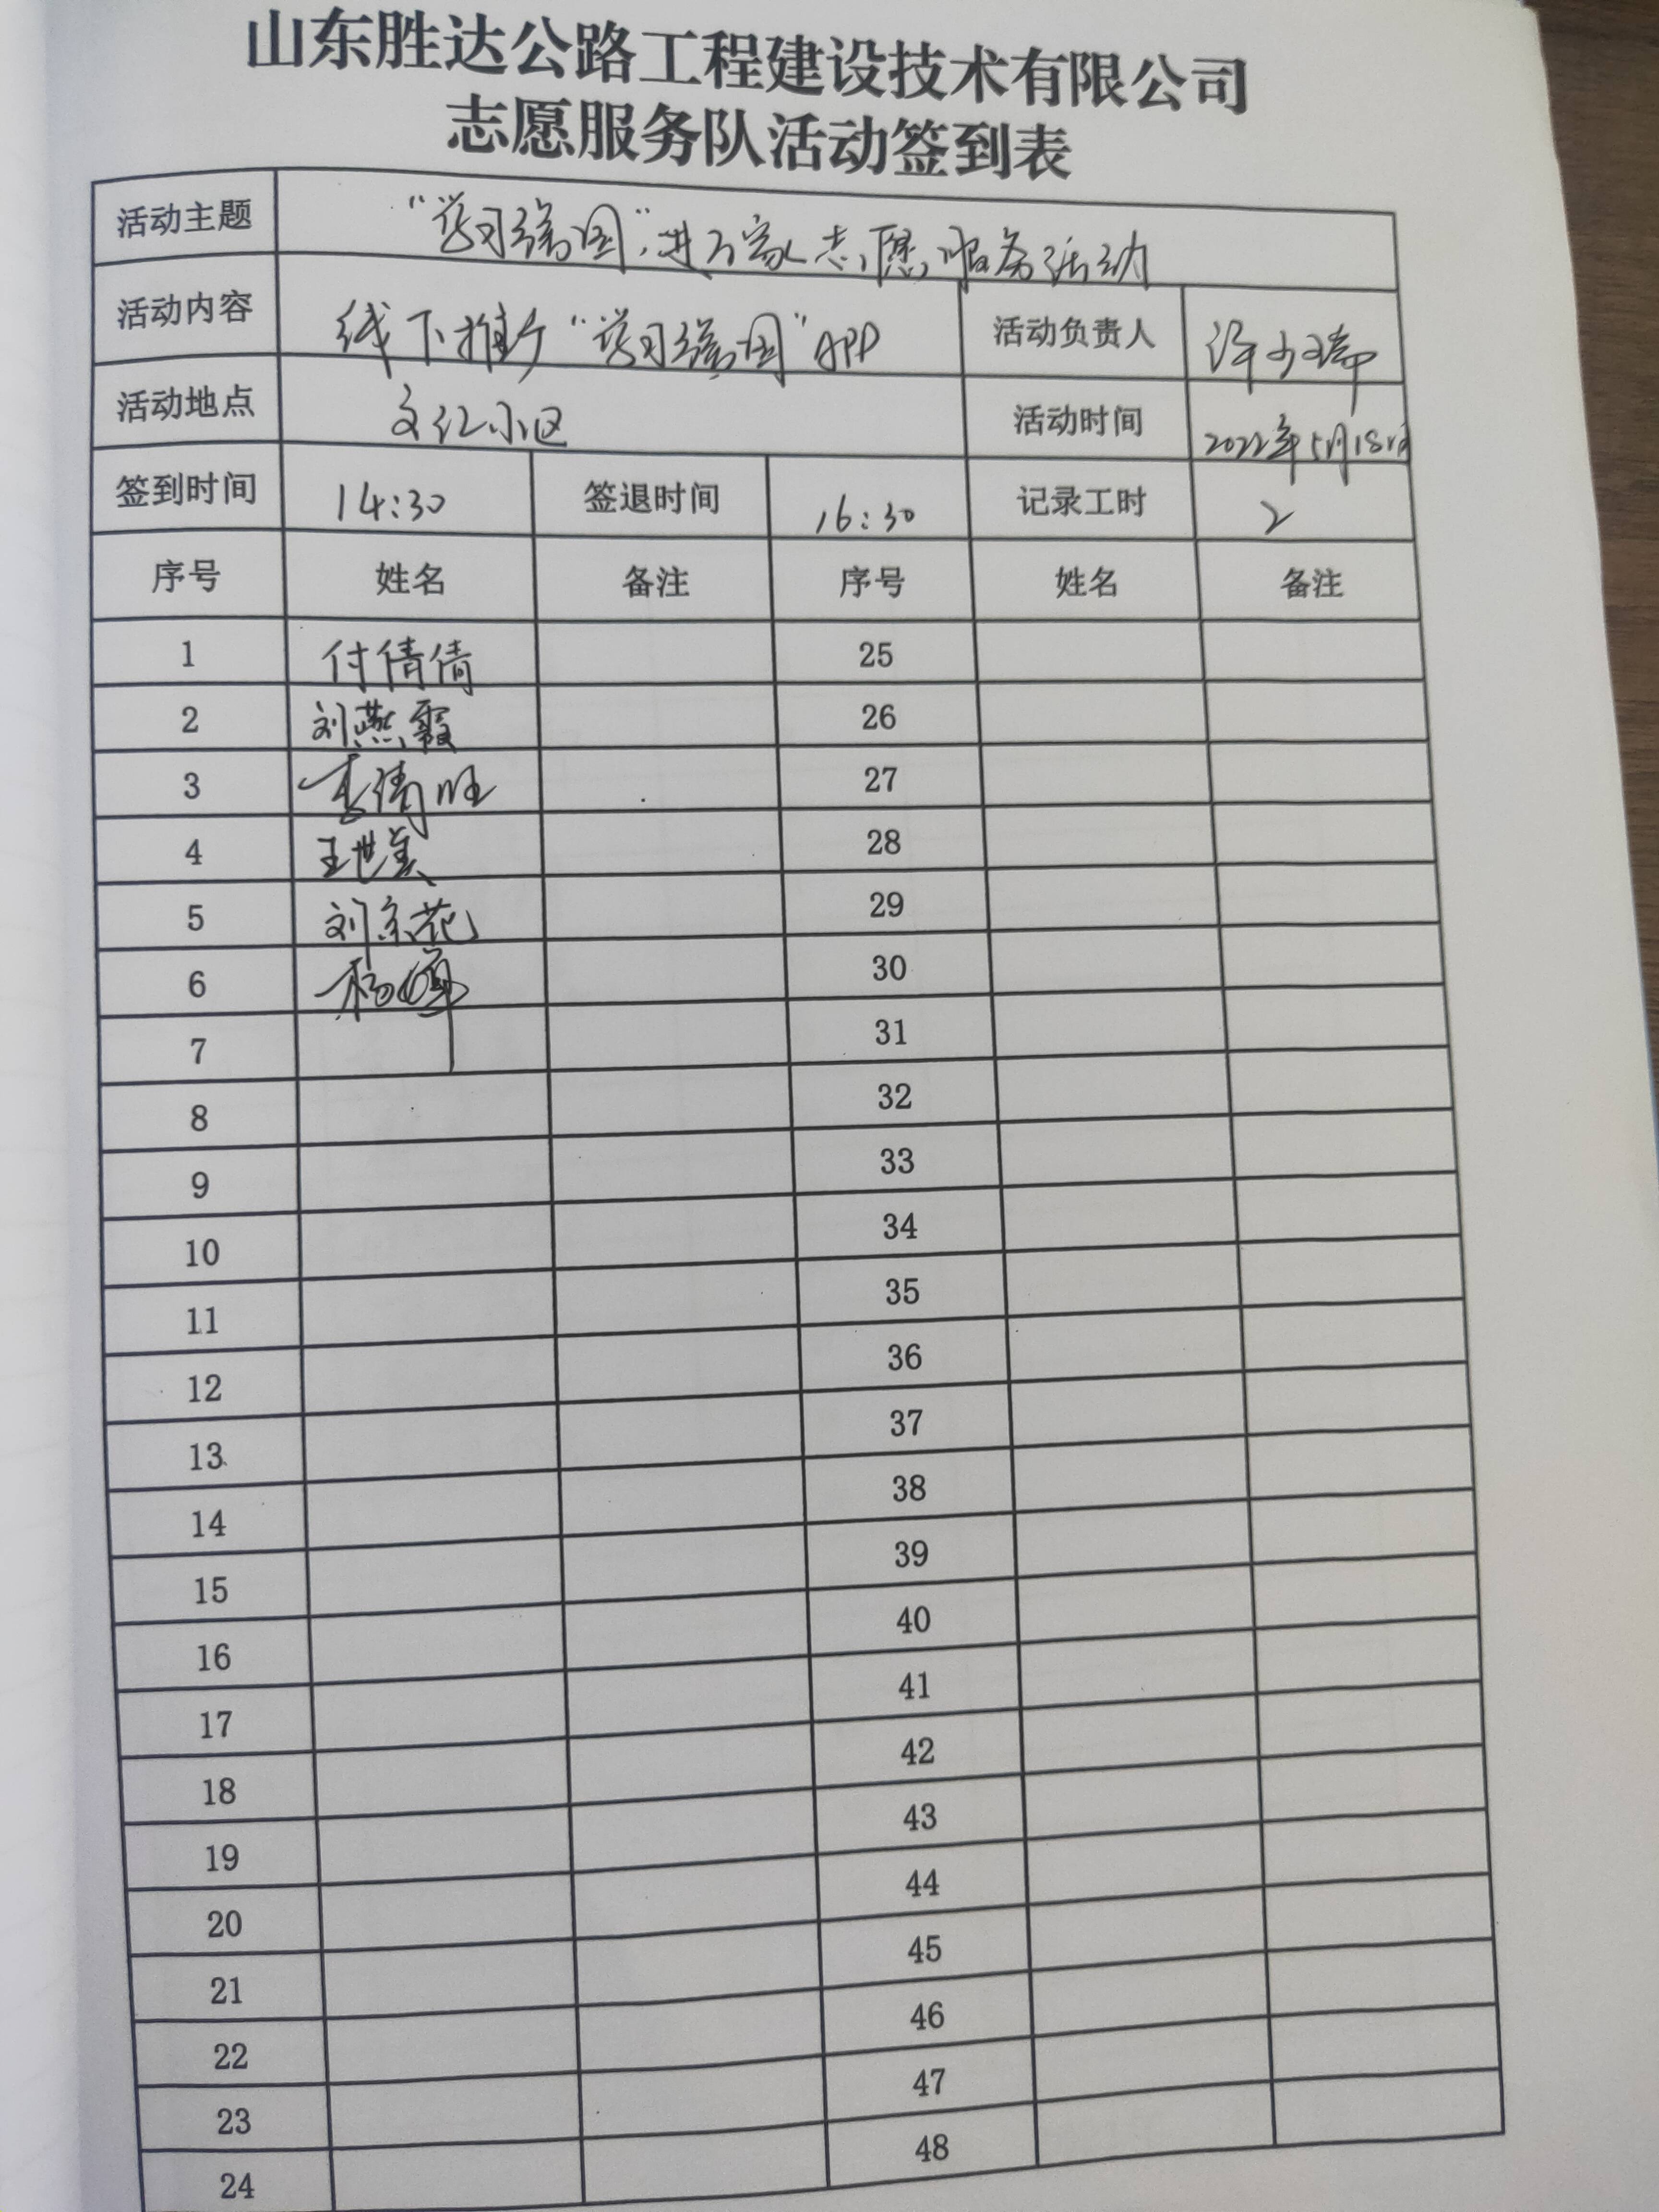 山东胜达公路工程建设技术有限公司
志愿服务队活动签到表
活动主题 “学习强国”进万家志愿服务活动
活动内容 线下推广“学习强国”APP 活动负责人 许少瑞
活动地点 文汇小区 活动时间 2022年5月18日
签到时间 14:30 签退时间 16:30 记录工时 2
序号 姓名 备注 序号 姓名 备注
1 付倩倩 25
2 刘燕霞 26
3 李倩 27
4 王世美 28
5 刘京花 29
6 杨 30
7 31
8 32
9 33
10 34
11 35
12 36
13 37
14 38
15 39
16 40
17 41
18 42
19 43
20 44
21 45
22 46
23 47
24 48